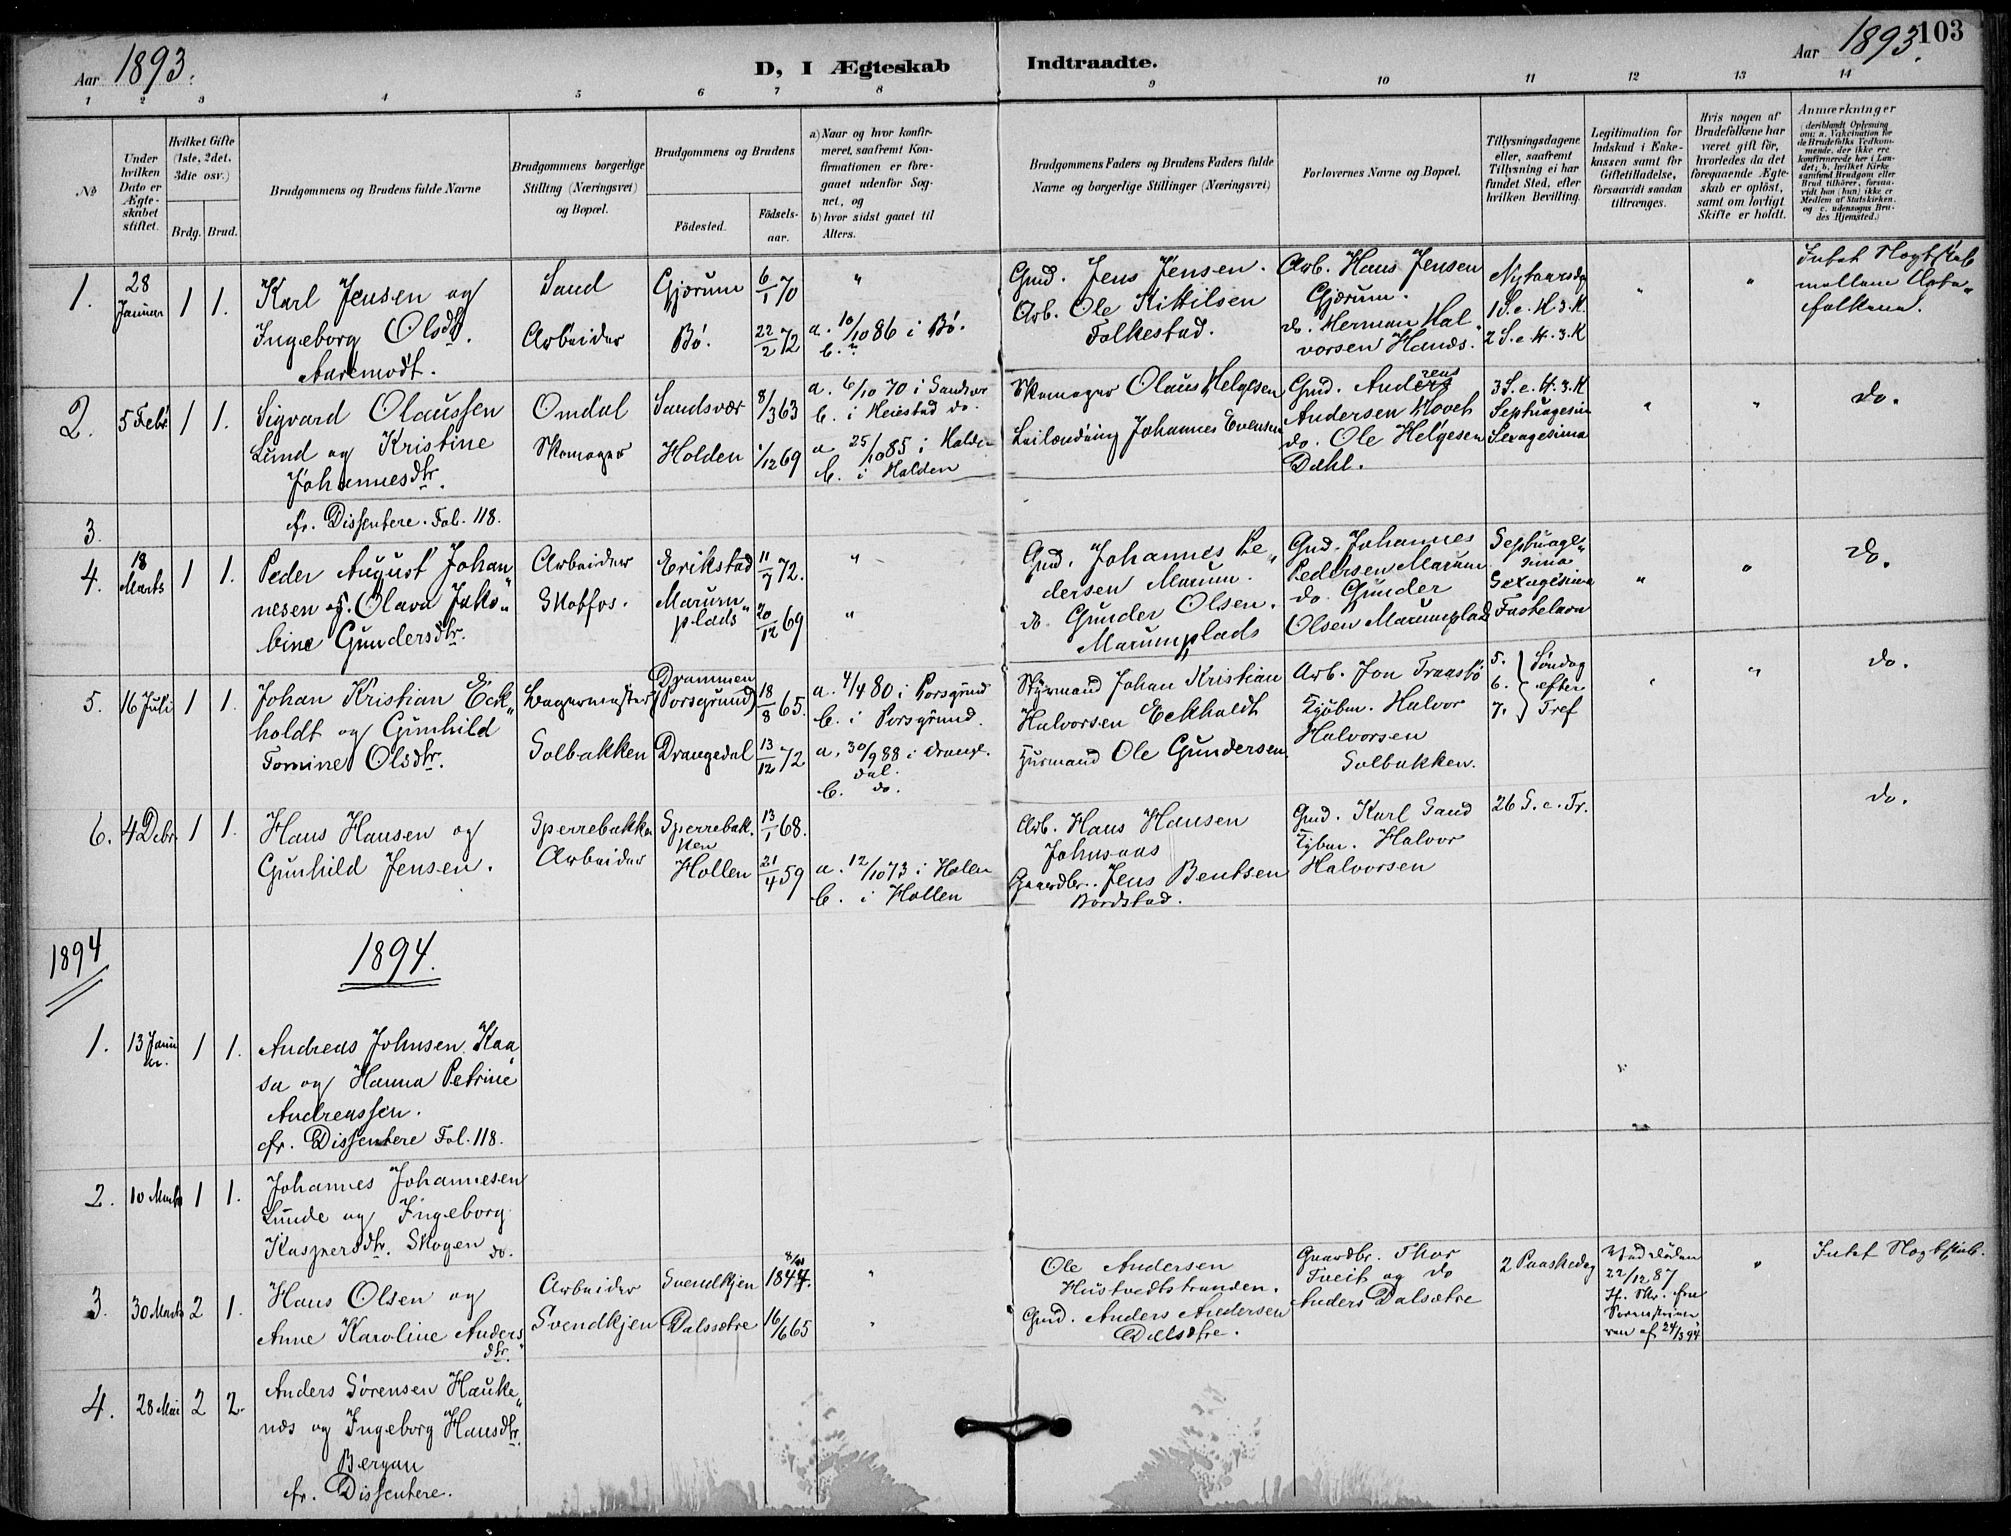 Aar 1893.
D, I Ægteskab Indtraadte.
Aar 1893.
103
1 2 3 4 5 6 7 8 9 10 11 12 13 14
No
Under hvilken Dato er Ægteskabet stiftet.
Hvilket Gifte (1ste, 2det, 3die osv.)
Brdg. Brud.
Brudgommens og Brudens fulde Navne
Brudgommens borgerlige Stilling (Næringsvei) og Bopæl.
Brudgommens og Brudens
Födested.
Födsels-aar.
a) Naar og hvor konfirmeret, saafremt Konfirmationen er foregaaet udenfor Sognet, og
b) hvor sidst gaaet til Alters.
Brudgommens Faders og Brudens Faders fulde Navne og borgerlige Stillinger (Næringsvei)
Forlovernes Navne og Bopæl.
Tillysningsdagene eller, saafremt Tillysning ei har fundet Sted, efter hvilken Bevilling.
Legitimation for Indskud i Enkekassen samt for Giftetilladelse, forsaavidt saadan tiltrænges.
Hvis nogen af Brudefolkene har været gift för, hvorledes da det foregaaende Ægteskab er oplöst, samt om lovligt Skifte er holdt.
Anmærkninger
(deriblandt Oplysning om: a. Vakcination for de Brudefolks Vedkommende, der ikke ere konfirmerede her i Landet; b. hvilket Kirkesamfund Brudgom eller Brud tilhörer, forsaavidt han (hun) ikke er Medlem af Statskirken. og c. udensogns Brudes Hjemsted.)
1. 28 Januar 1 1. Karl Jensen og
Ingeborg Olsdtr.
Aaremodt.
Sand
Arbeider
Gjærum 6/1 70 "
Bö. 22/2 72 a. 10/10 86 i Bö.
b. "
Gmd. Jens Jensen.
Arb. Ole Kittilsen
Folkestad.
Arb. Hans Jensen
Gjærum.
do. Herman Hal
vorsen Hanes.
Nytaarsdag
1 S. e. H. 3. K.
2 S. e. H. 3. K
" "
Intet Slægtskab
mellem Ægte„
folkene.
2. 5 Febr. 1 1. Sigvard Olaussen
Lund og Kristine
Johannesdtr.
Omdal
Skomager
Sandsvær 8/3 63 a. 6/10 70 i Sandsvær
b. i Heistad do.
Holden 1/12 69 a. 25/10 85 i Holden
b. i Holden
Skomager Olaus Helgesen
Leilænding Johannes Evensen
Gmd. Anders
Andersen Hovet
do. Ole Helgesen
Dæhl.
3 S. e. H. 3. K
Septuagesima
Sexagesima
" "
do.
3. cfr. Dissentere. Fol. 118.
4. 18 Marts 1 1. Peder August Johan„
nesen og Olava Jako„
bine Gundersdtr.
Arbeider
Skotfos.
Erikstad 11/7 72. "
Marum„
plads 20/12 69 "
Gmd. Johannes Pe„
dersen Marum.
do Gunder Olsen.
Marumplads
Gmd. Johannes
Pedersen Marum
do Gunder
Olsen Marumplads
Septuage„
sima
Sexagesima
Fastelavn
" "
do.
5. 16 Juli 1 1. Johan Kristian Eck„
holdt og Gunhild
Tomine Olsdtr.
Lagermester
Solbakken
Drammen
(Porsgrund) 18/8 65. a. 4/4 80 i Porsgrund
b. i Porsgrund.
Drangedal 13/12 72 a. 30/9 88 i Drange.
dal.
b. do.
Styrmand Johan Kristian
Halvorsen Eckholdt
Husmand Ole Gundersen
Arb. Jon Traasbö
Kjöbm. Halvor
Halvorsen
Solbakken.
5.
6. } Söndag efter Tref
7.
" "
do.
6. 4 Debr. 1 1. Hans Hansen og
Gunhild Jensen.
Sperrebakken
Arbeider
Sperrebak.
ken 13/1 68.
Hollen 21/4 59 a. 12/10 73 i Holen
b. i Hollen
Arb. Hans Hansen
Johnsaas
Gaardbr. Jens Bentsen
Bordstad.
Gmd. Karl Sand
Kjbm. Halvor
Halvorsen
26 S. e. Tr.
do.
1894 1894.
1. 13 Janu
ar. 1 1. Andreas Johnsen Kaa
sa og Hanna Petrine
Andreassen.
cfr. Dissentere Fol. 118.
2. 10 Marts 1 1. Johannes Johannesen
Lunde og Ingeborg
Kaspersdtr. Skogen do.
3. 30 Marts 2 1. Hans Olsen og
Anne Karoline Anders
dtr.
Arbeider
Svendkjen
Svendkjen 1844. "
Dalssætre 16/6 65 "
Ole Andersen
Hustvedtstranden.
Gmd. Anders Andersen
Dalsætre.
Gaardbr. Thor
Tveit og do
Anders Dalsætre
2 Paaskedag
Ved Döden
22/12 87
af 24/3 94
"
Intet Slægtskab.
4. 28 Mai 2 2. Anders Sörensen Hauke„
næs og Ingeborg Hansdtr.
Bergan
cfr. Dissentere.